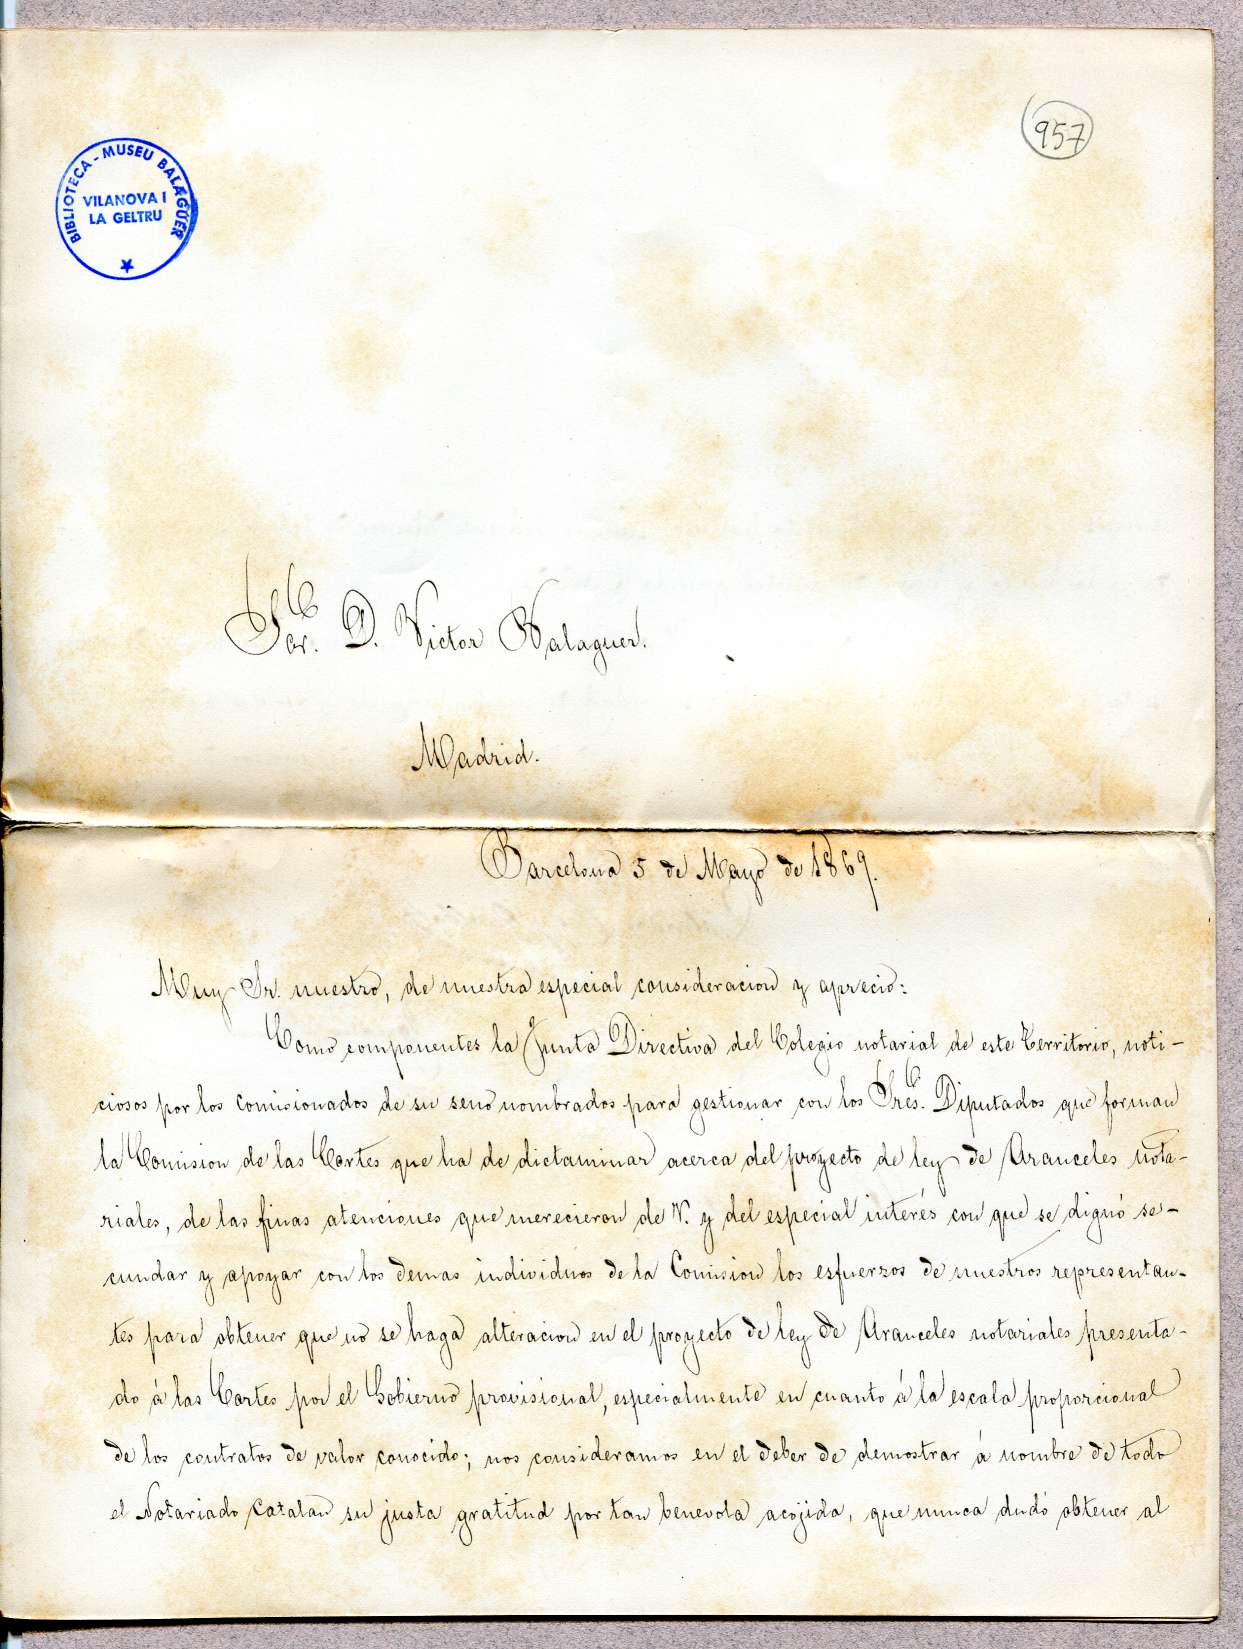 957
BIBLIOTECA - MUSEU BALAGUER
VILANOVA I
LA GELTRU
Sor. D. Victor Balaguer.
Madrid.
Barcelona 5 de Mayo de 1869.
Muy Sr. nuestro, de nuestra especial consideracion y aprecio:
Como componentes la Junta Directiva del Colegio notarial de este Territorio, noti-
ciosos por los comisionados de su seno nombrados para gestionar con los Sres. Diputados que forman
la Comision de las Cortes que ha de dictaminar acerca del proyecto de ley de Aranceles nota-
riales, de las finas atenciones que merecieron de V. y del especial interés con que se dignó se-
cundar y apoyar con los demas individuos de la Comision los esfuerzos de nuestros representan-
tes para obtener que no se haga alteracion en el proyecto de ley de Aranceles notariales presenta-
do á las Cortes por el Gobierno provisional, especialmente en cuanto á la escala proporcional
de los contratos de valor conocido; nos consideramos en el deber de demostrar á nombre de todo
el Notariado Catalan su justa gratitud por tan benevola acojida, que nunca dudó obtener al